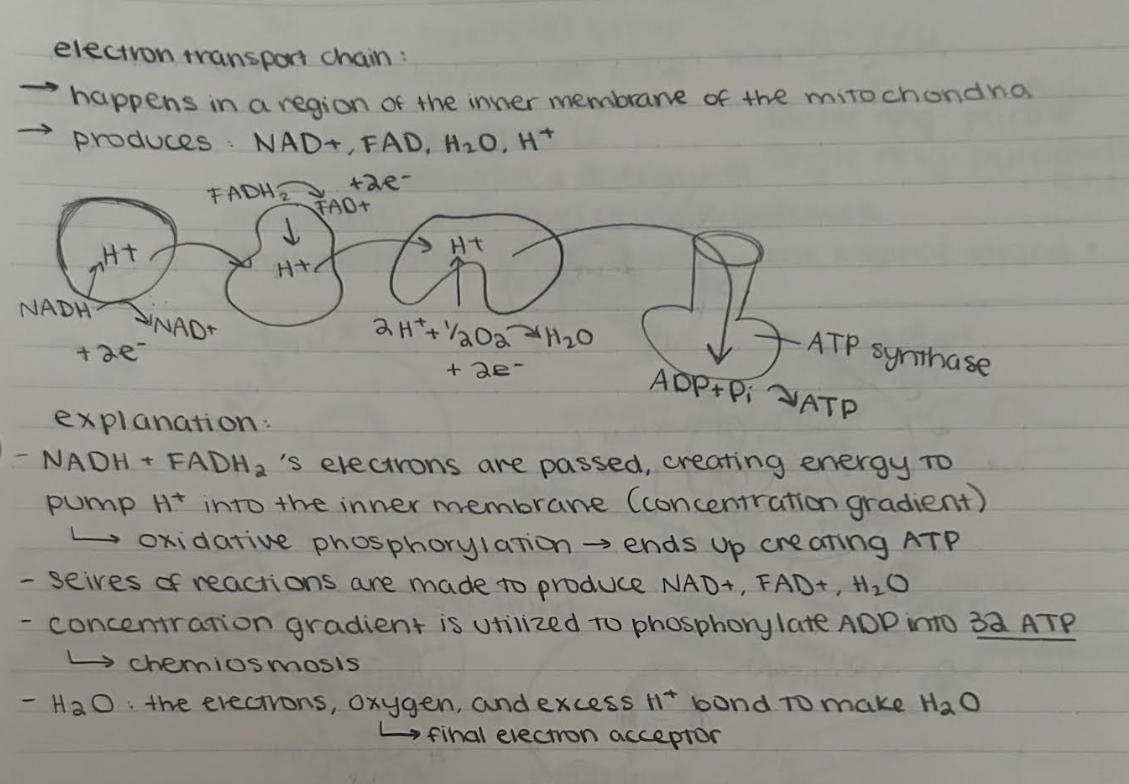 electron transport chain:
→ happens in a region of the inner membrane of the mitochondria
→ produces: NAD+, FAD, H₂O, H⁺
FADH₂ → FAD+ +2e-
H+
H+
H+
NADH → NAD+
+2e⁻
2H⁺+½O₂ → H₂O
+ 2e-
ATP synthase
ADP+Pi → ATP
explanation:
- NADH + FADH₂ 's electrons are passed, creating energy to
pump H⁺ into the inner membrane (concentration gradient)
↳ oxidative phosphorylation → ends up creating ATP
- seires of reactions are made to produce NAD+, FAD+, H₂O
- concentration gradient is utilized to phosphorylate ADP into 32 ATP
↳ chemiosmosis
- H₂O: the electrons, oxygen, and excess H⁺ bond to make H₂O
↳ final electron acceptor